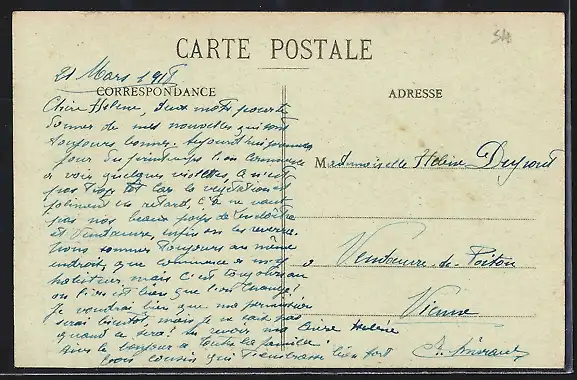 CARTE POSTALE
CORRESPONDANCE
ADRESSE
21 Mars 191
Chère Helene, deux mots pour te
donner de mes nouvelles qui sont
toujours bonnes. Aujourd'hui premier
jour du printemps l'on commence
a voir quelques violettes, a n'est
pas trop tôt car la végétation est
joliment en retard, ça ne vaut
pas nos beaux pays de
et Vendeuvre, enfin on les reverra.
Nous sommes toujours au même
endroit, que commence a m'y
habituer, mais c'est toujours
on l'on est bien que l'on change!
Je voudrai bien que ma permission
serai bientôt mais je ne sait pas
quand ce sera! Au revoir ma Chère Helène
le bonjour a toute la famille!
Ton cousin qui t'embrasse bien fort
Mademoiselle Helène Dupont
a Vendeuvre-du-Poitou
Vienne